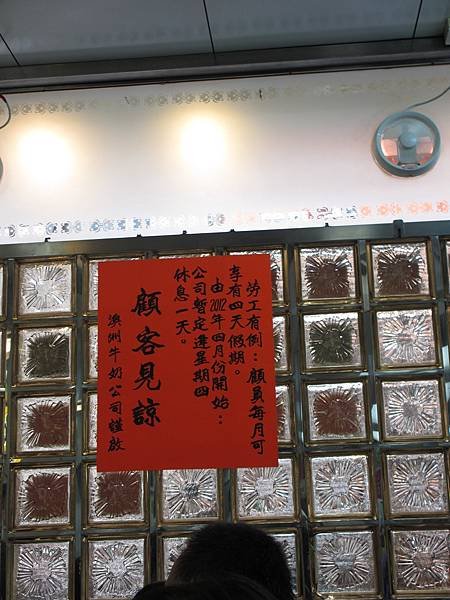 勞工有例：顧員每月可
享有四天假期。
由2012年四月份開始：
公司暫定逢星期四
休息一天。
顧客見諒
澳洲牛奶公司謹啟